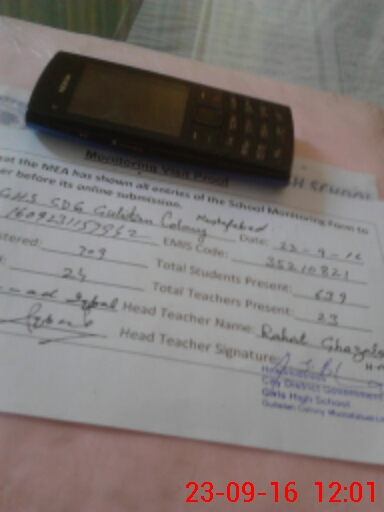 NOKIA
Monitoring Visit Proof
at the MEA has shown all entries of the School Monitoring Form to
er before its online submission.
GHS SDG Gulistan Colony Mustafabad Date: 22-9-16
EMIS Code: 35210821
stered: 709 Total Students Present: 639
24 Total Teachers Present: 23
Iqbal Head Teacher Name: Rahat Ghazala
Head Teacher Signature:
City District Government
Girls High School
Gulistan Colony
23-09-16 12:01